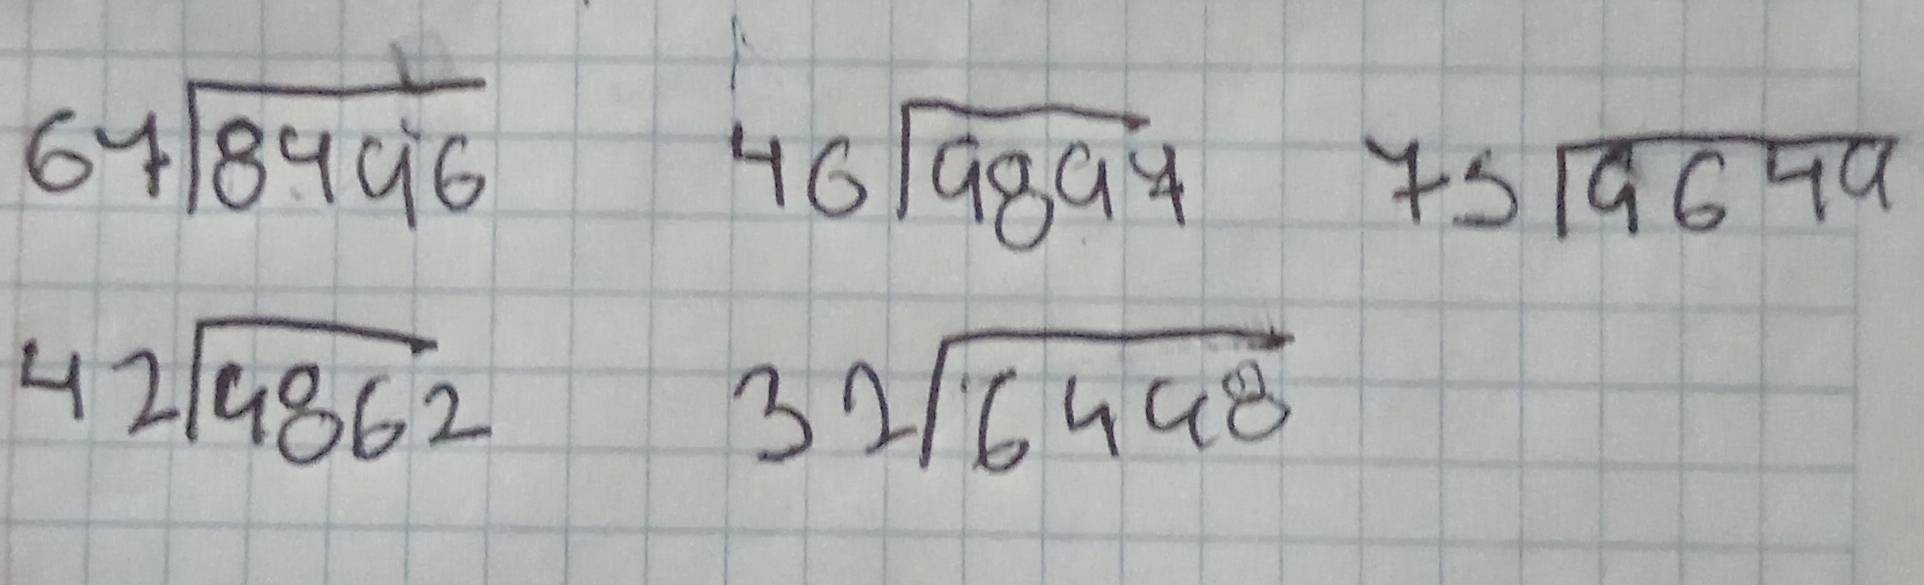 67⟌8496 46⟌9897 75⟌9649
42⟌9862 32⟌6498